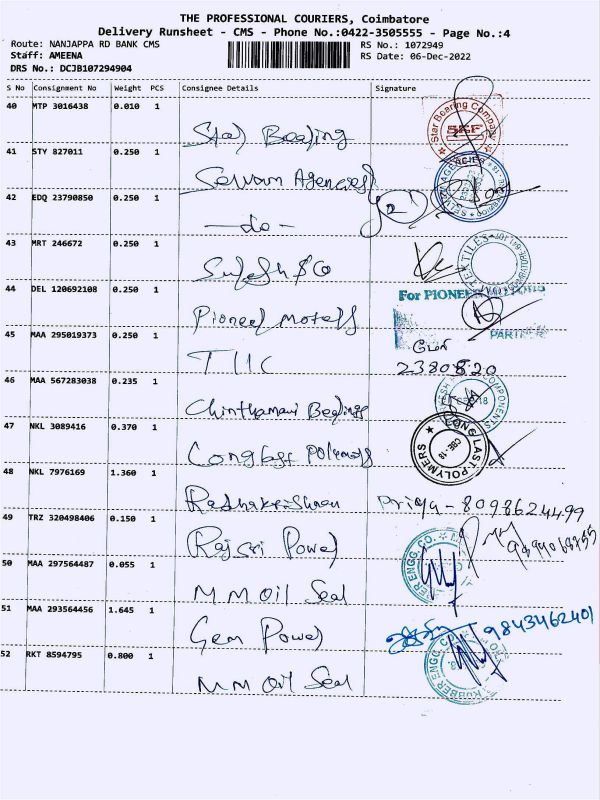 THE PROFESSIONAL COURIERS, Coimbatore
Delivery Runsheet - CMS - Phone No.:0422-3505555 - Page No.:4
Route: NANJAPPA RD BANK CMS RS No.: 1072949
Staff: AMEENA RS Date: 06-Dec-2022
DRS No.: DCJB107294904
S No Consignment No Weight PCS Consignee Details Signature
40 MTP 3016438 0.010 1
Star Bearing Company
SKF
Star Bearing
41 STY 827011 0.250 1
Selvam Agencies
42 EDQ 23790850 0.250 1
-do-
43 MRT 246672 0.250 1
TEXTILES
Suresh & Co
44 DEL 120692108 0.250 1
For PIONEER MOTORS
Pioneer Motors
45 MAA 295019373 0.250 1
TIIC
2380820
46 MAA 567283038 0.235 1
COMPONENTS
Chinthamani Bearings
47 NKL 3089416 0.370 1
LONG LAST POLYMERS
CBE-18
Longlast Polymers
48 NKL 7976169 1.360 1
Radhakrishnan Priya - 8098624499
49 TRZ 320498406 0.150 1
Rajsri Power
50 MAA 297564487 0.055 1
MM Oil Seal
51 MAA 293564456 1.645 1
Gem Power 9843462401
52 RKT 8594795 0.800 1
RUBBER ENGG. CO.
MM Oil Seal